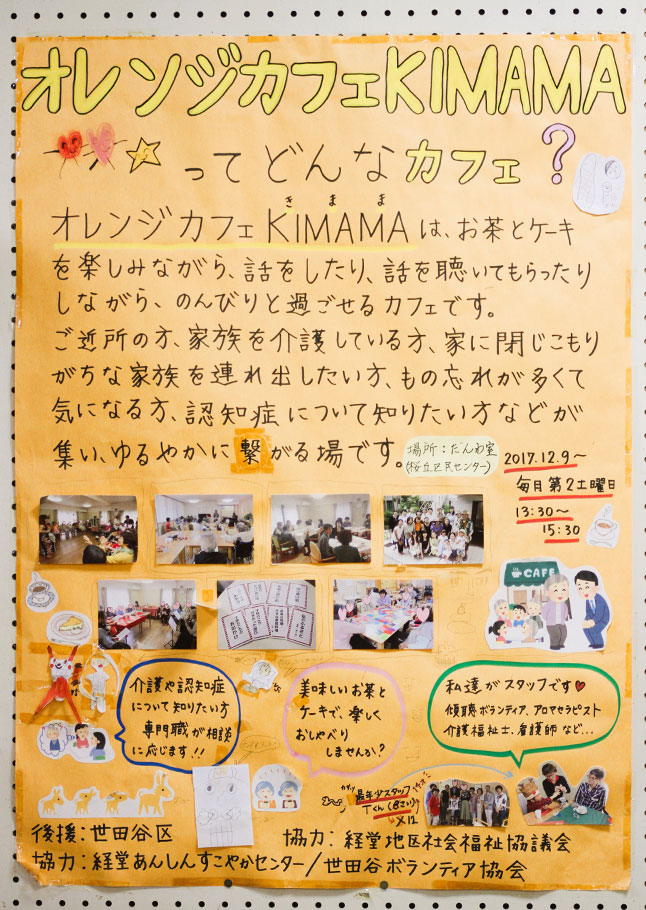 オレンジカフェKIMAMA
ってどんなカフェ?
きまま
オレンジカフェKIMAMAは、お茶とケーキ
を楽しみながら、話をしたり、話を聴いてもらったり
しながら、のんびりと過ごせるカフェです。
ご近所の方、家族を介護している方、家に閉じこもり
がちな家族を連れ出したい方、もの忘れが多くて
気になる方、認知症について知りたい方などが
集い、ゆるやかに繋がる場です。
場所:だんわ室
(桜丘区民センター)
2017.12.9〜
毎月第2土曜日
13:30〜
15:30
CAFE
介護や認知症
について知りたい方
専門職が相談
に応じます!!
美味しいお茶と
ケーキで、楽しく
おしゃべり
しませんか?
私達がスタッフです♥
傾聴ボランティア、アロマセラピスト
介護福祉士、看護師など...
最年少スタッフ
Tくん(8さい)
後援:世田谷区
協力:経堂地区社会福祉協議会
協力:経堂あんしんすこやかセンター/世田谷ボランティア協会